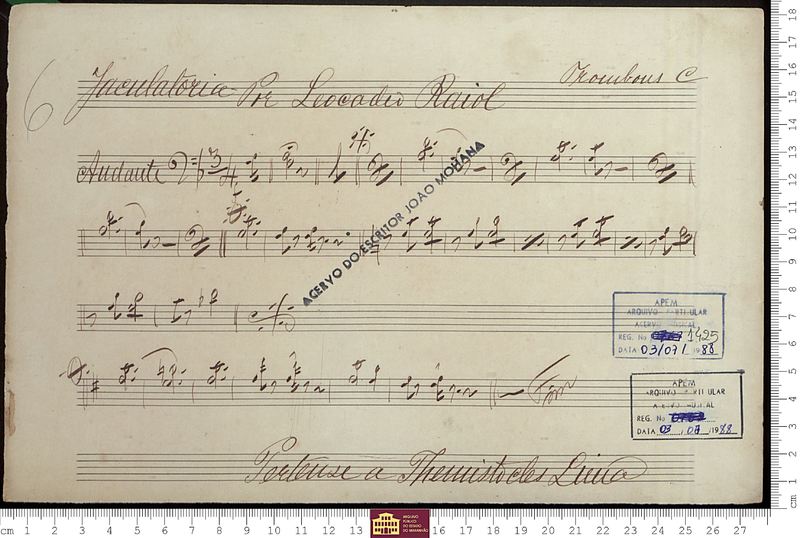 6
Jaculatoria Por Leocadio Raiol
Trombone C
Andante
ACERVO DO ESCRITOR JOÃO MOHANA
APEM
ARQUIVO PARTICULAR
ACERVO MUSICAL
REG. No 1425
DATA 03/07/1988
Fim
APEM
ARQUIVO PARTICULAR
ACERVO MUSICAL
REG. No
DATA 03, 07, 1988
Pertense a Themistocles Lima
cm 1 2 3 4 5 6 7 8 9 10 11 12 13
ARQUIVO PÚBLICO DO ESTADO DO MARANHÃO
16 17 18 19 20 21 22 23 24 25 26 27
18
17
16
15
14
13
12
11
10
9
8
7
6
5
4
3
2
1
cm